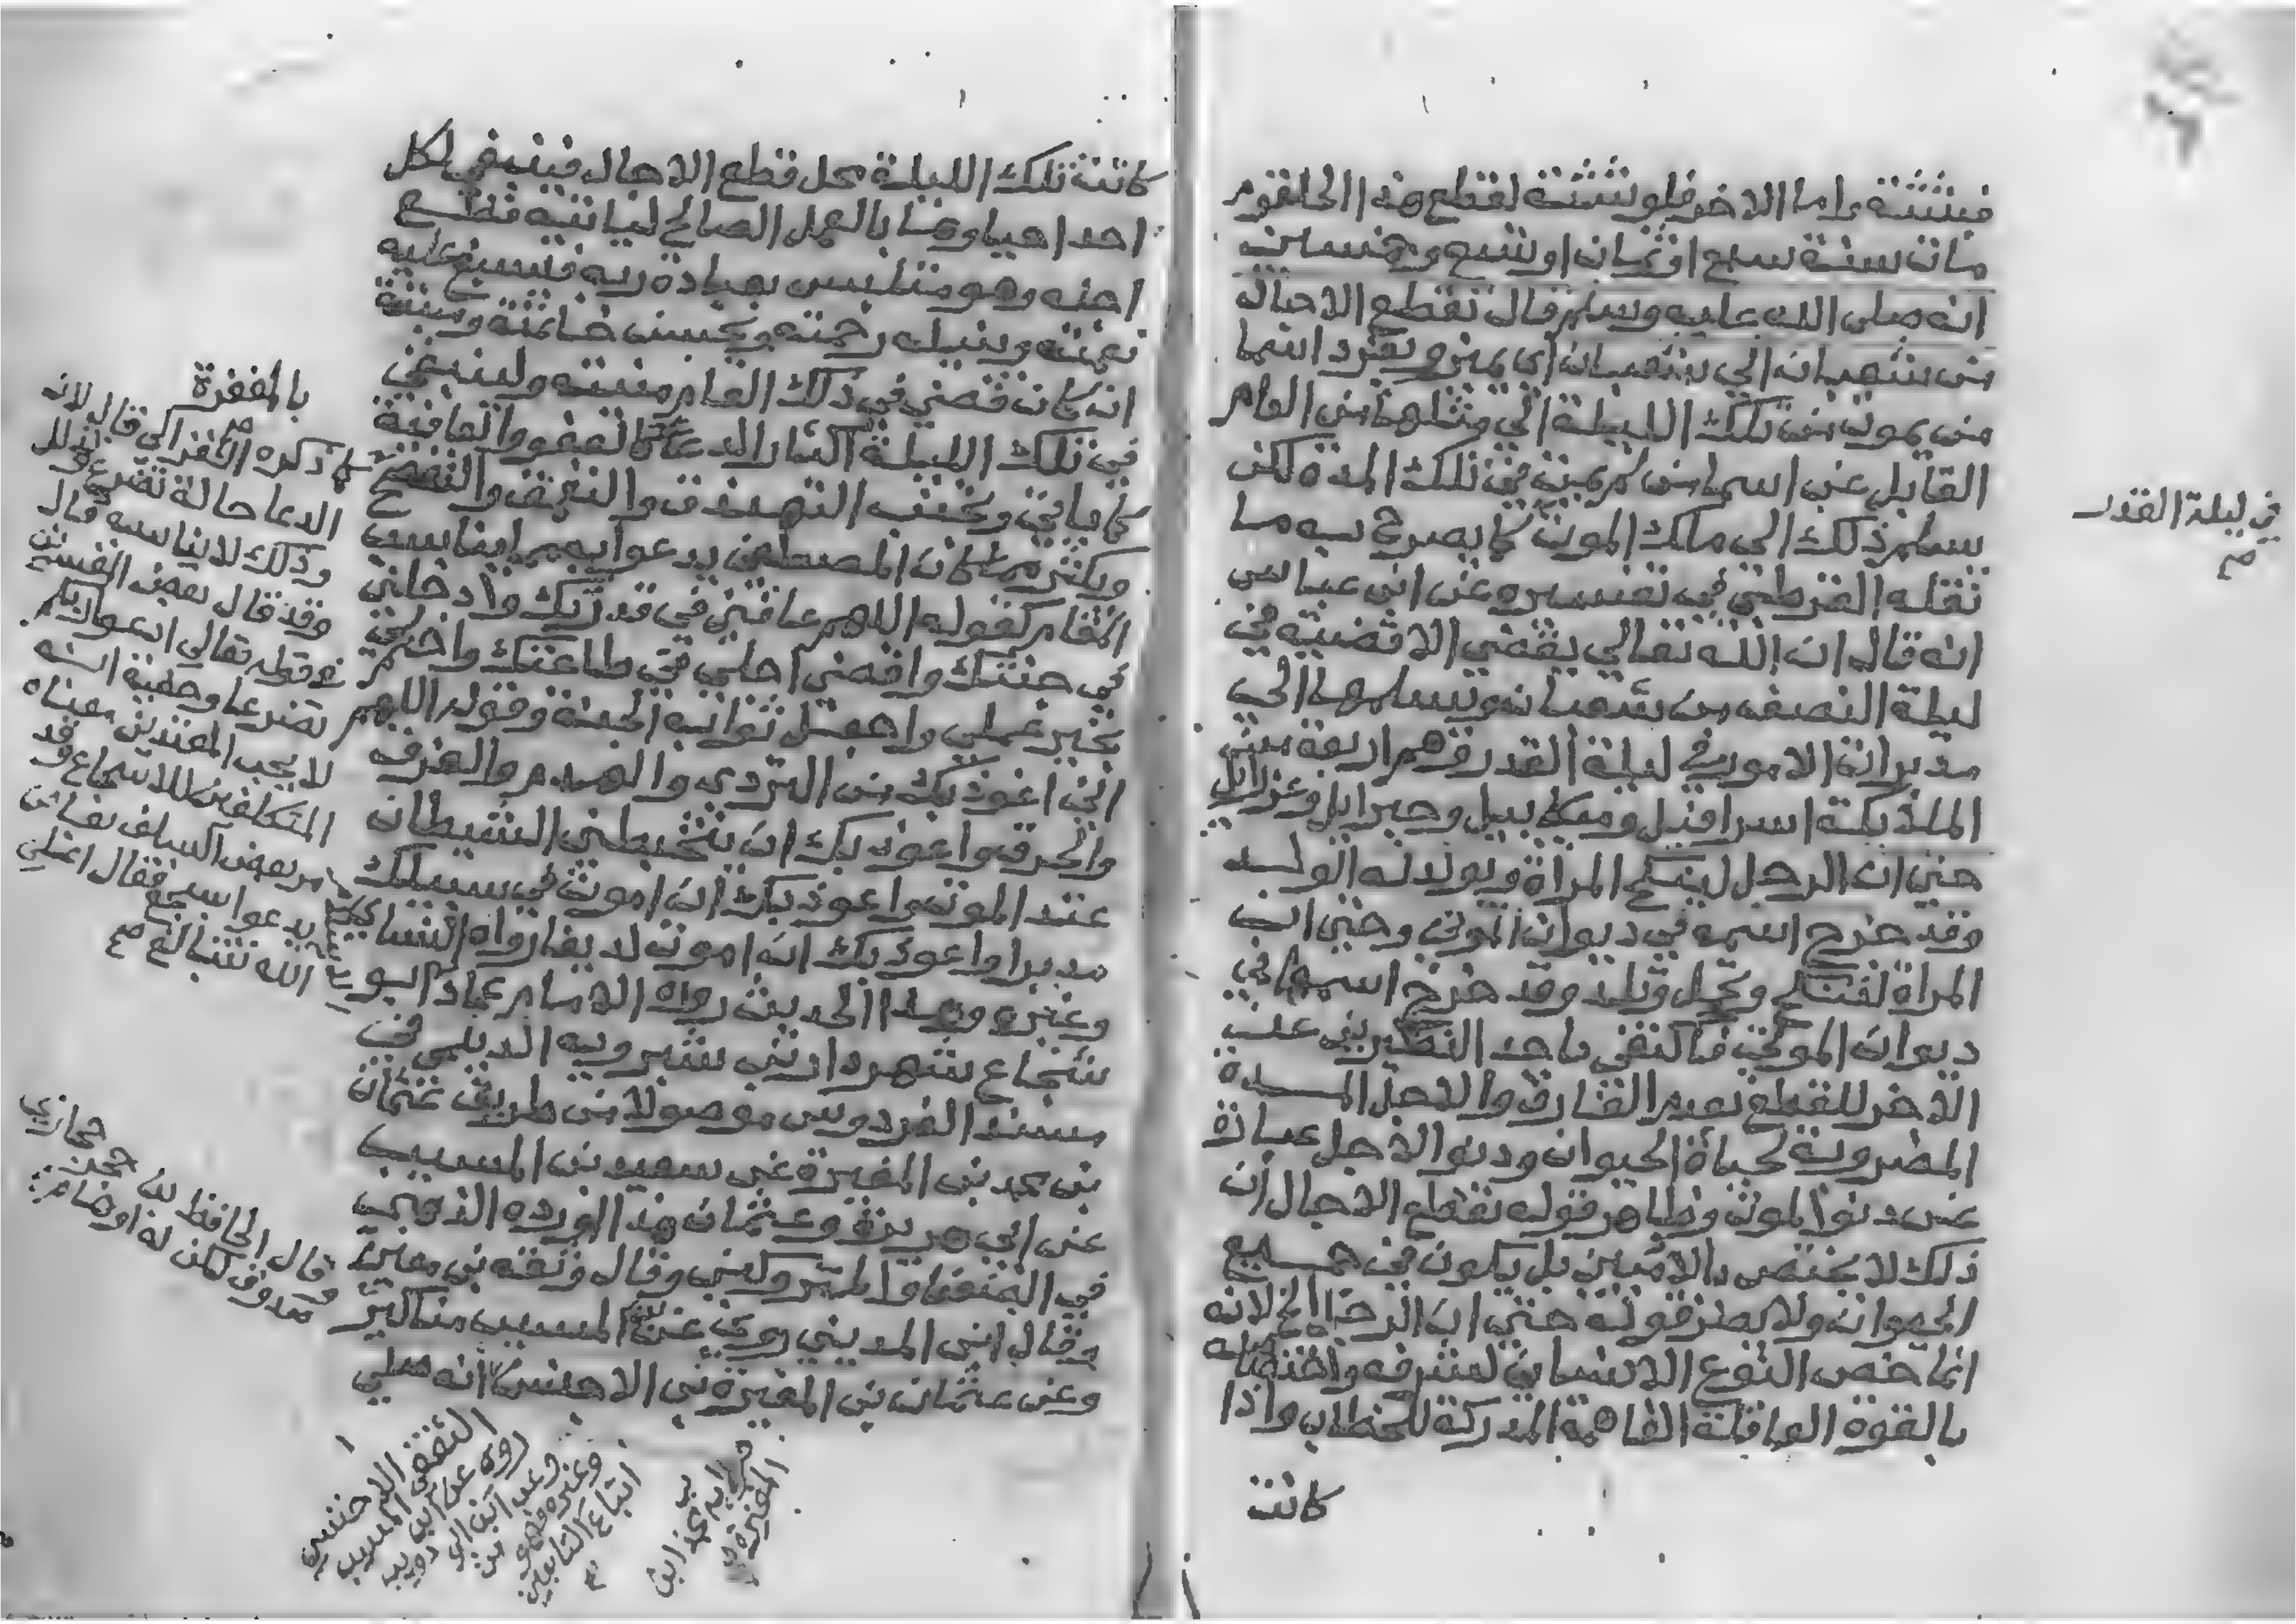 فبثثته واما الاخر فلو بثثته لقطع هذا الحلقوم
مات سنة سبع او ثمان او تسع وخمسين
انه صلى الله عليه وسلم قال تقطع الاجال
من شعبان الي شعبان اي يميز ويفرد اسما
من يموت من تلك الليلة الي مثلها من العام
القابل عن اسما من لم يمت في تلك المدة لكن
يسلم ذلك الي ملك الموت كما يصرح به ما
نقله القرطبي في تفسيره عن ابن عباس
انه قال ان الله تعالي يقضي الاقضية في
ليلة النصف من شعبان ويسلمها الي
مدبرات الامور في ليلة القدر وهم اربعة من
الملايكة اسرافيل وميكاييل وجبرايل وعزرايل
حتي ان الرجل لينكح المراة ويولد له الولد
وقد خرج اسمه في ديوان الموتي وحتي ان
المراة لتنكح وتحبل وتلد وقد خرج اسمها في
ديوان الموتي فاكتفي باحد النظيرين عن
الاخر للقطع بعدم الفارق والاجل المدة
المضروبة لحياة الحيوان ودنو الاجل عبارة
عن دنو الموت وظاهر قوله تقطع الاجال ان
ذلك لا يختص بالادميين بل يكون في جميع
الحيوان ولا يضر قوله حتي ان الرجل الخ لانه
انما خص النوع الانساني لشرفه واختصاصه
بالقوة العاقلة الفاهمة المدركة للخطاب واذا
كانت
في ليلة القدر
صح
كانت تلك الليلة محل قطع الاجال فينبغي لكل
احد احياوها بالعمل الصالح لياتيه قطع
اجله وهو متلبس بعبادة ربه فيسبغ عليه
نعمته وينيله رحمته ويحسن خاتمته وميتته
ان كان قضي في ذلك العام منيته ولينبغي
في تلك الليلة اكثار الدعا بالعفو والعافية
كما ياتي ويجتنب التصدق والتفيهق والتفصح
ويكثر من كان المصطفي يدعوا به مما يناسب
المقام كقوله اللهم عافني في قدرتك وادخلني
في جنتك واقض اجلي في طاعتك واختم لي
بخير عملي واجعل ثوابه الجنة وقوله اللهم
اني اعوذ بك من التردي والهدم والغرق
والحرق واعوذ بك ان يتخبطني الشيطان
عند الموت واعوذ بك ان اموت في سبيلك
مدبرا واعوذ بك ان اموت لديغا رواه النساي
وغيره وهذا الحديث رواه الامام عماد ابو
شجاع شهردار بن شيرويه الديلمي في
مسند الفردوس موصولا من طريق عثمان
بن محمد بن المغيرة عن سعيد بن المسيب
عن ابي هريرة وعثمان هذا اورده الذهبي
في الضعفا والمتروكين وقال وثقه بن معين
وقال ابن المديني روي عن بن المسيب مناكير
وعن عثمان بن المغيرة بن الاخنس انه صلي
بالمغفرة
صح
كما ذكره الغزالي قال لانه
الدعا حالة تضرع وتذلل
وذلك لا يناسبه قال
وقد قال بعض المفسرين
في قوله تعالي ادعوا ربكم
تضرعا وخفية انه
لا يحب المعتدين معناه
المتكلفين للاسجاع وقد
مر بعض السلف بقاص
يدعوا بسجع فقال اعلي
الله تتبالغ صح
قال الحافظ بن حجر حجازي
صدوق لكن له اوهام
الثقفي الاخنسي
روي عن ابن المسيب
وعنه ابن ابي ذويب
وغيره فهو من
اتباع التابعين
صح
محمد ابن
المغيرة